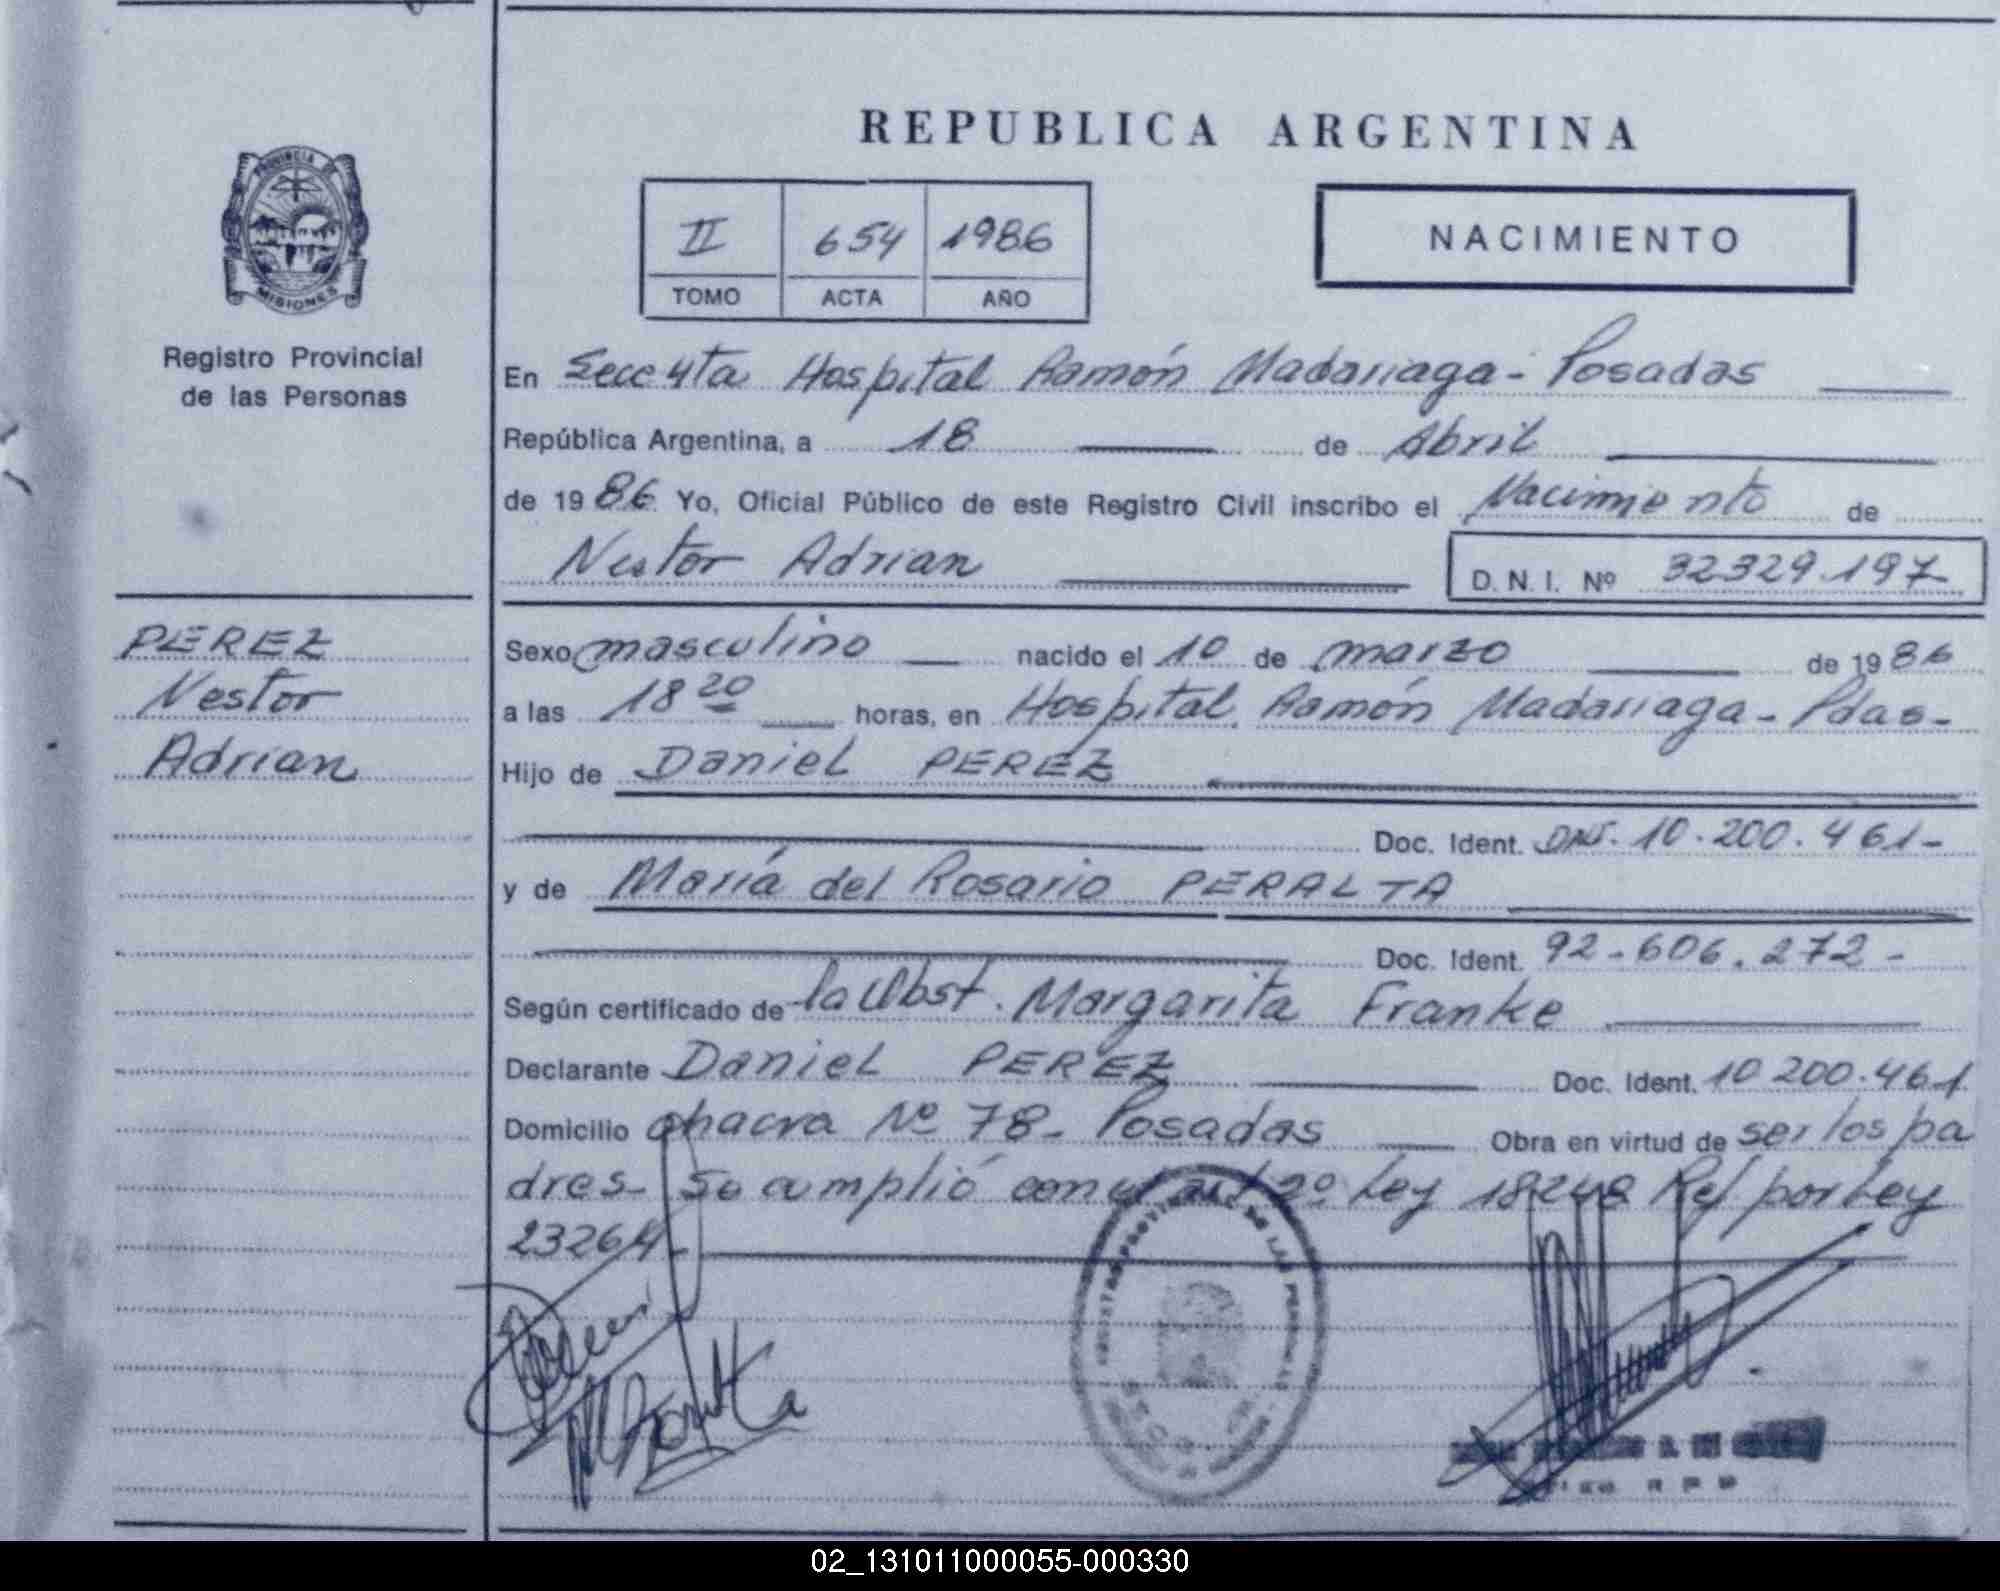 REPUBLICA ARGENTINA
PROVINCIA DE
MISIONES
Registro Provincial
de las Personas
II 654 1986
TOMO ACTA AÑO
NACIMIENTO
En Secc 4ta Hospital Ramón Madariaga - Posadas
República Argentina, a 18 de Abril
de 1986 Yo, Oficial Público de este Registro Civil inscribo el Nacimiento de
Nestor Adrian D. N. I. Nº 32329.197
PEREZ
Nestor
Adrian
Sexo masculino nacido el 10 de marzo de 1986
a las 18 20 horas, en Hospital Ramón Madariaga - Pdas -
Hijo de Daniel PEREZ
Doc. Ident. DNI. 10.200.461 -
y de María del Rosario PERALTA
Doc. Ident. 92-606.272 -
Según certificado de la Obst. Margarita Franke
Declarante Daniel PEREZ Doc. Ident. 10 200.461
Domicilio chacra Nº 78 - Posadas Obra en virtud de ser los pa
dres - Se cumplió con el art 2º Ley 18248 Ref por Ley
23264 -
02_131011000055-000330